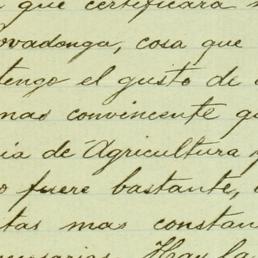 que certificará
ovadonga, cosa que
tengo el gusto de
mas convincente
ia de Agricultura y
o fuere bastante,
tas mas constan
Hay la